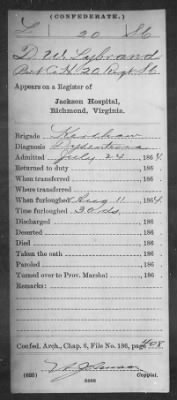 (CONFEDERATE.)
L 20 S.C.
D. W. Lybrand
Pvt Co. H. 20 Regt S.C.
Appears on a Register of
Jackson Hospital,
Richmond, Virginia.
Brigade Kershaw
Diagnosis Dysenteria
Admitted July 24, 1864
Returned to duty , 186 .
When transferred , 186 .
Where transferred
When furloughed Aug 11, 1864.
Time furloughed 30 ds.
Discharged , 186 .
Deserted , 186 .
Died , 186 .
Taken the oath , 186 .
Paroled , 186 .
Turned over to Prov. Marshal , 186 .
Remarks:
Confed. Arch., Chap. 6, File No. 186, page 408
(635) Copyist.